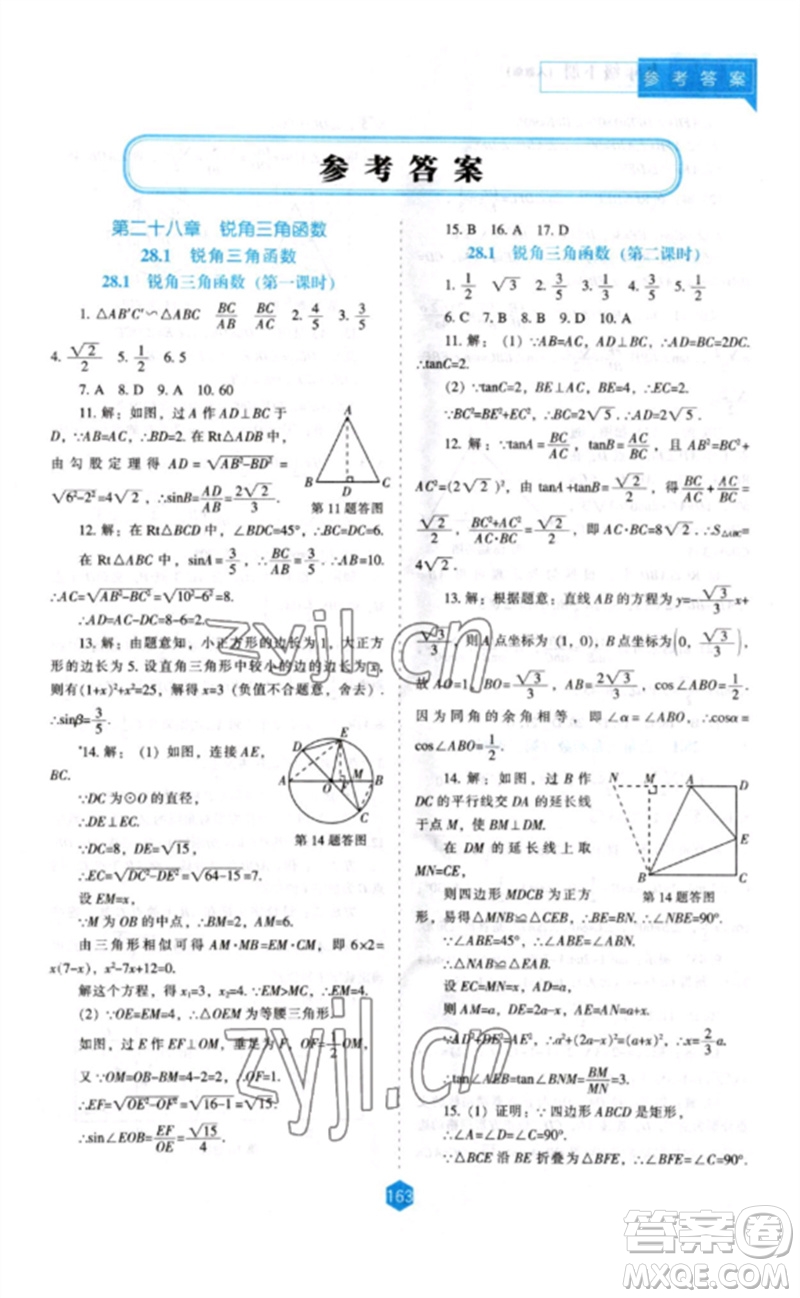 参考答案
参考答案
第二十八章 锐角三角函数
28.1 锐角三角函数
28.1 锐角三角函数（第一课时）
1. △AB′C′∽△ABC BC/AB BC/AC 2. 4/5 3. 3/5
4. √2/2 5. 1/2 6. 5
7. A 8. D 9. A 10. 60
11. 解：如图，过 A 作 AD⊥BC 于
D，∵AB=AC，∴BD=2. 在 Rt△ADB 中，
由勾股定理得 AD=√(AB²-BD²)=
√(6²-2²)=4√2，∴sinB=AD/AB=2√2/3.
A
B
D
C
第 11 题答图
12. 解：在 Rt△BCD 中，∠BDC=45°，∴BC=DC=6.
在 Rt△ABC 中，sinA=3/5，∴BC/AB=3/5，∴AB=10.
∴AC=√(AB²-BC²)=√(10²-6²)=8.
∴AD=AC-DC=8-6=2.
13. 解：由题意知，小正方形的边长为 1，大正方
形的边长为 5. 设直角三角形中较小的边的边长为 x，
则有(1+x)²+x²=25，解得 x=3（负值不合题意，舍去）.
∴sinβ=3/5.
*14. 解：（1）如图，连接 AE，
BC.
∵DC 为⊙O 的直径，
∴DE⊥EC.
∵DC=8，DE=√15，
∴EC=√(DC²-DE²)=√(64-15)=7.
D
E
A
O
F
M
B
C
第 14 题答图
设 EM=x，
∵M 为 OB 的中点，∴BM=2，AM=6.
由三角形相似可得 AM·MB=EM·CM，即 6×2=
x(7-x)，x²-7x+12=0.
解这个方程，得 x₁=3，x₂=4. ∵EM>MC，∴EM=4.
（2）∵OE=EM=4，∴△OEM 为等腰三角形.
如图，过 E 作 EF⊥OM，垂足为 F，OF=1/2 OM，
又∵OM=OB-MB=4-2=2，∴OF=1.
∴EF=√(OE²-OF²)=√(16-1)=√15.
∴sin∠EOB=EF/OE=√15/4.
15. B 16. A 17. D
28.1 锐角三角函数（第二课时）
1. 1/2 √3 2. 3/5 3. 1/2 4. 3/5 5. 1/2
6. C 7. B 8. B 9. D 10. A
11. 解：（1）∵AB=AC，AD⊥BC，∴AD=BC=2DC.
∴tanC=2.
（2）∵tanC=2，BE⊥AC，BE=4，∴EC=2.
∵BC²=BE²+EC，∴BC=2√5. ∴AD=2√5.
12. 解：∵tanA=BC/AC，tanB=AC/BC，且 AB²=BC²+
AC²=(2√2)²，由 tanA+tanB=√2/2，得 BC/AC+AC/BC=
√2/2，(BC²+AC²)/(AC·BC)=√2/2，即 AC·BC=8√2. ∴S△ABC=
4√2.
13. 解：根据题意：直线 AB 的方程为 y=-√3/3 x+
√3/3，则 A 点坐标为（1，0），B 点坐标为（0，√3/3），
故 AO=1，BO=√3/3，AB=2√3/3，cos∠ABO=1/2.
因为同角的余角相等，即∠α=∠ABO. ∴cosα=
cos∠ABO=1/2.
14. 解：如图，过 B 作
DC 的平行线交 DA 的延长线
于点 M，使 BM⊥DM.
在 DM 的延长线上取
MN=CE，
N
M
A
D
E
B
C
第 14 题答图
则四边形 MDCB 为正方
形，易得△MNB≌△CEB，∴BE=BN. ∴∠NBE=90°.
∵∠ABE=45°，∴∠ABE=∠ABN.
∴△NAB≌△EAB.
设 EC=MN=x，AD=a，
则 AM=a，DE=2a-x，AE=a+x，
∵AD²+DE²=AE²，∴a²+(2a-x)²=(a+x)². ∴x=2/3 a.
∴tan∠AEB=tan∠BNM=BM/MN=3.
15. （1）证明：∵四边形 ABCD 是矩形，
∴∠A=∠D=∠C=90°.
∵△BCE 沿 BE 折叠为△BFE，∴∠BFE=∠C=90°.
163
zyjl.cn
zyjl.cn
答案卷
MXQE.COM